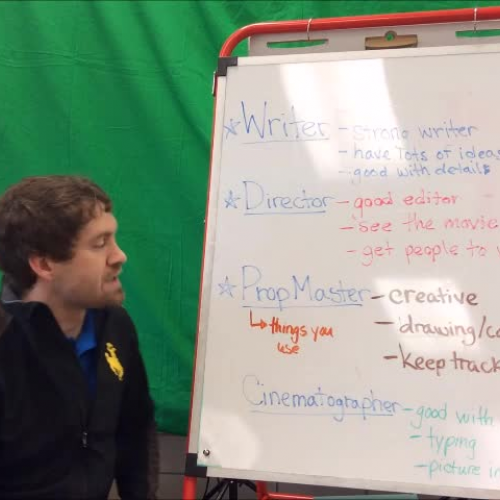 ☆Writer - strong writer
- have lots of ideas
- good with details
☆Director - good editor
- see the movie
- get people to
☆PropMaster - creative
↳ things you use
- drawing/co
- keep track
Cinematographer - good with
- typing
- picture in